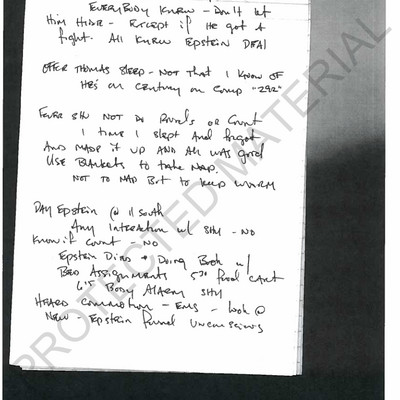 EVERYBODY KNEW - DON'T LET
HIM HIDE - EXCEPT IF HE GOT A
FIGHT. ALL KNEW EPSTEIN DEAL
OFFER THOMAS SLEEP - NOT THAT I KNOW OF
HE'S ON CENTURY ON COMP "292"
EVER SHU NOT DO ROUNDS OR COUNT
1 TIME I SLEPT AND FORGOT
AND MADE IT UP AND ALL WAS GOOD
USE BLANKETS TO TAKE NAP.
NOT TO NAP BUT TO KEEP WARM
DAY EPSTEIN @ 11 SOUTH
ANY INTERACTION W/ SHU - NO
KNOW IF COUNT - NO
EPSTEIN DIED - DOING BOOK W/
BED ASSIGNMENTS 5:30 FOOD CART
6:15 BODY ALARM SHU
HEARD COMMOTION - EMS - LOOK @
NEW - EPSTEIN FOUND UNCONSCIOUS
PROTECTED MATERIAL